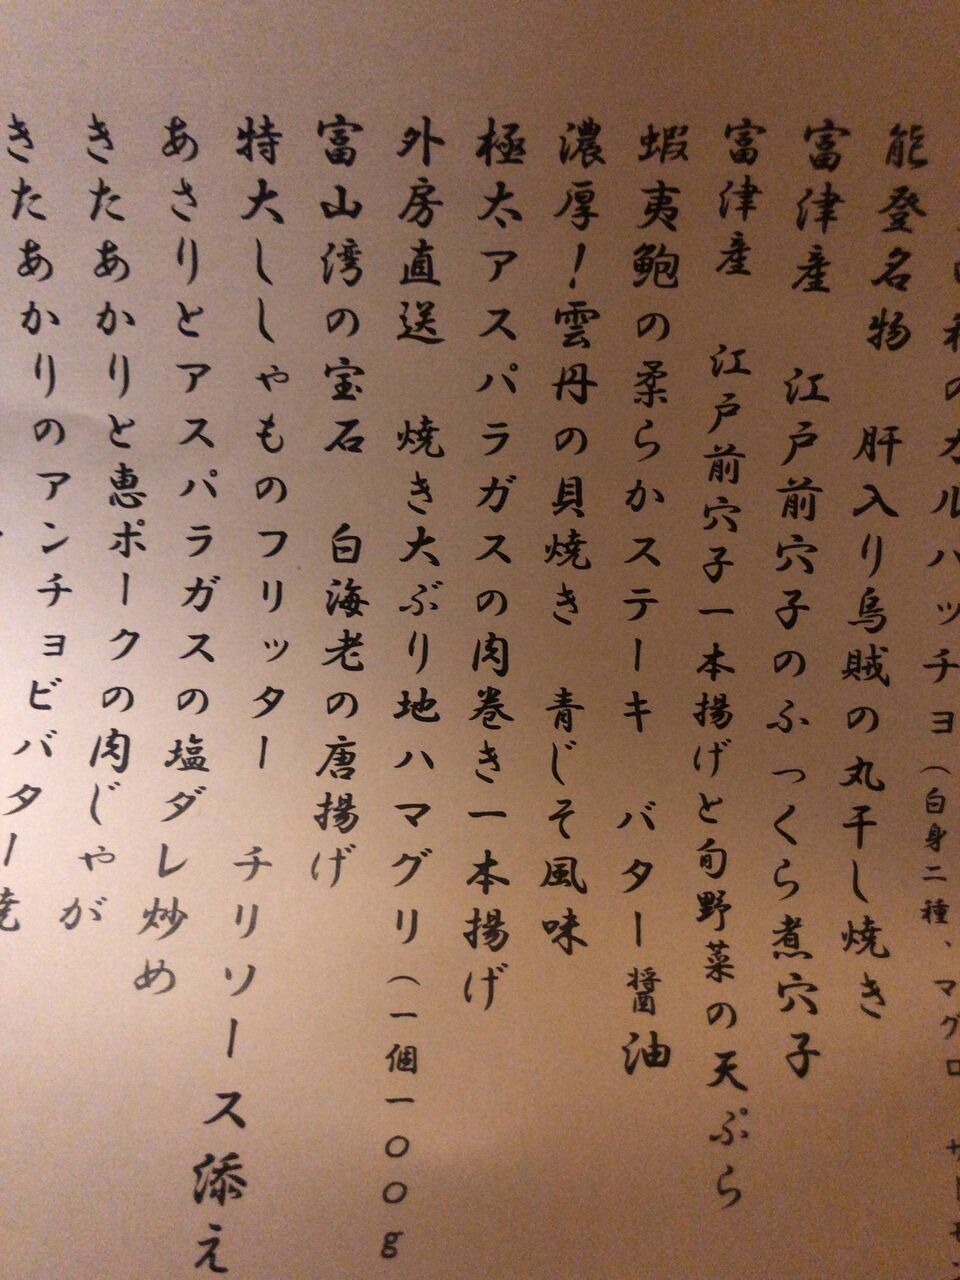 のカルパッチョ（白身二種、マグロ
能登名物　肝入り烏賊の丸干し焼き
富津産　江戸前穴子のふっくら煮穴子
富津産　江戸前穴子一本揚げと旬野菜の天ぷら
蝦夷鮑の柔らかステーキ　バター醤油
濃厚！雲丹の貝焼き　青じそ風味
極太アスパラガスの肉巻き一本揚げ
外房直送　焼き大ぶり地ハマグリ（一個一〇〇g
富山湾の宝石　白海老の唐揚げ
特大ししゃものフリッター　チリソース添え
あさりとアスパラガスの塩ダレ炒め
きたあかりと恵ポークの肉じゃが
きたあかりのアンチョビバター焼